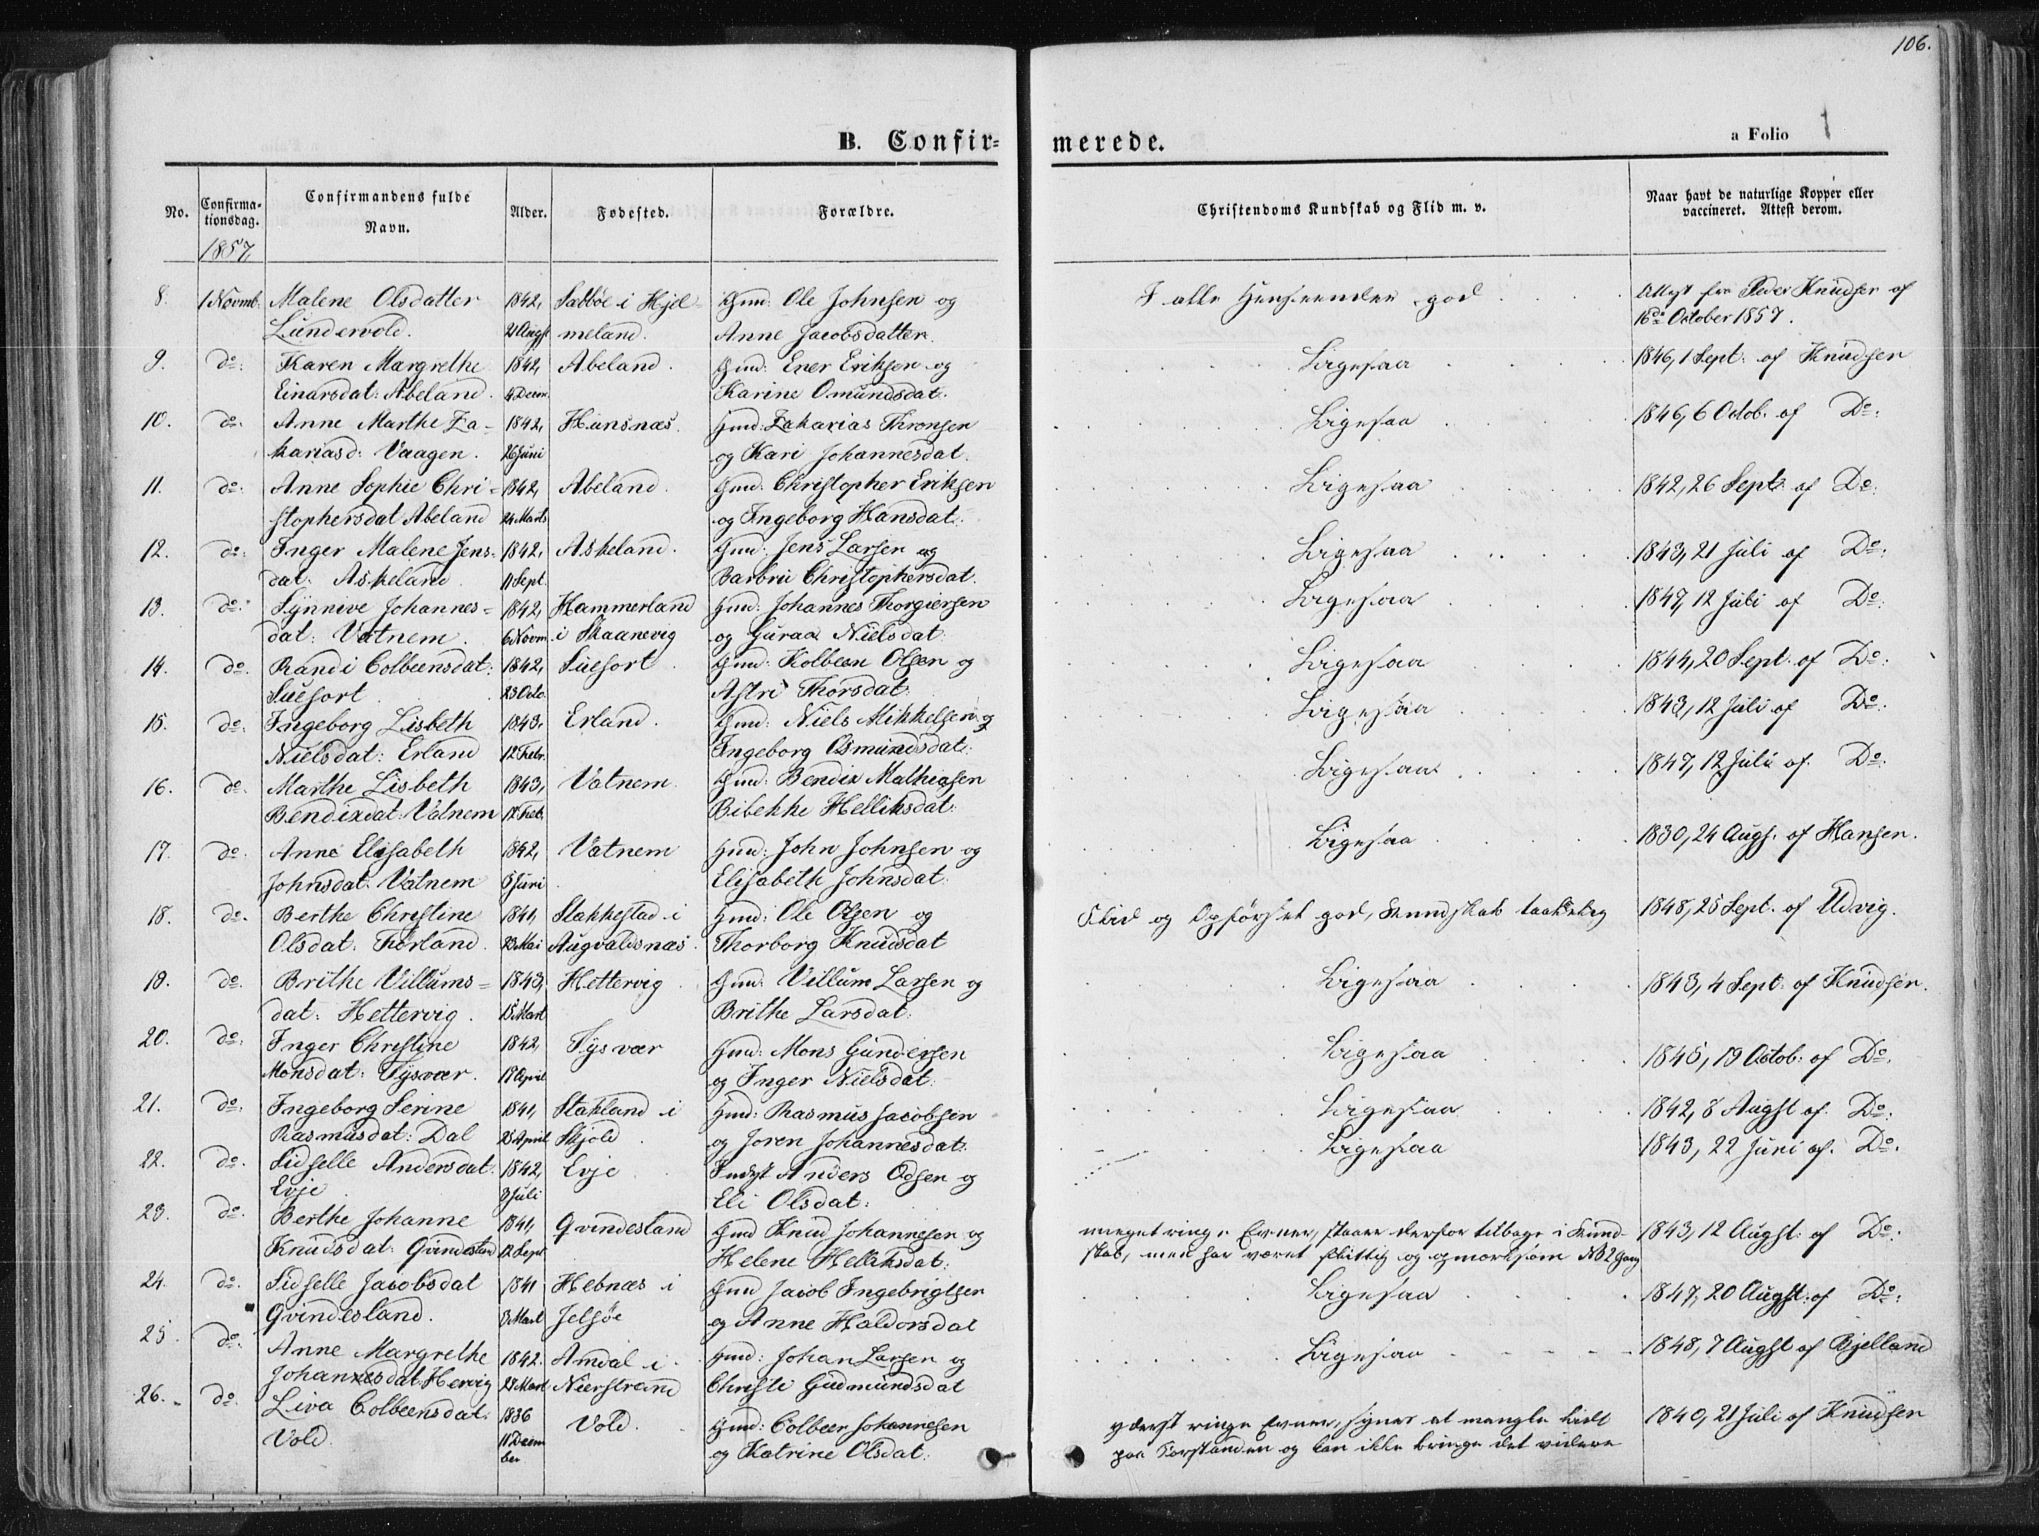 106.
B. Confir-
merede.
a Folio 1
No.
Confirma-
tionsdag.
1857,
Confirmandens fulde
Navn.
Alder.
Fødested.
Forældre.
Christendoms Kundskab og Flid m. v.
Naar havt de naturlige Kopper eller
vaccineret. Attest derom.
8. 1 Novmb. Malene Olsdatter 1842, Sætbøe i Hjel- Gmd: Ole Johnsen og I alle Henseender god Attest fra Peder Knudsen af
Lundevold. 21 Augst meland. Anne Jacobsdatter. 16de October 1857.
9. do: Karen Margrethe 1842, Abeland. Gmd: Ener Eriksen og Ligesaa 1846, 1 Sept: af Knudsen
Einarsdat: Abeland. 4 Decm. Karine Omundsdat:
10. do: Anne Marthe Za- 1842, Hunsnæs. Gmd: Zakarias Thronsen Ligesaa 1846, 6 Octob. af Do:
kariasd: Vaagen. 26 Juni og Kari Johannesdat:
11. do: Anne Sophie Chri- 1842, Abeland. Gmd: Christopher Eriksen Ligesaa 1842, 26 Sept: af Do:
stophersdat Abeland 24 Marts og Ingeborg Hansdat:
12. do: Inger Malene Jens- 1842, Askeland. Gmd: Jens Larsen og Ligesaa 1843, 21 Juli af Do:
dat: Askeland. 11 Sept. Barbru Christophersdat.
13. do: Synnive Johannes- 1842, Hammerland Gmd: Johannes Thorgiersen Ligesaa 1847, 12 Juli af Do:
dat: Vatnem. 6 Novm. i Skaanevig og Guraa Nielsdat:
14. do: Randi Colbeensdat: 1842, Suefort. Gmd: Kolbeen Olsen og Ligesaa 1844, 20 Sept. af Do:
Suefort. 23 Octo. Astri Thorsdat:
15. do: Ingeborg Lisbeth 1843. Erland. Gmd: Niels Mikkelsen og Ligesaa 1843, 12 Juli af Do:
Nielsdat: Erland 12 Febr. Ingeborg Osmundsdat:
16. do: Marthe Lisbeth 1843, Vatnem Gmd: Bendix Mathiasen Ligesaa 1847, 12 Juli af Do:
Bendixdat: Vatnem 17 Feb. Bibekke Helliksdat:
17. do: Anne Elisabeth 1842, Vatnem Gmd: John Johnsen og Ligesaa 1830, 24 Augs. af Hansen.
Johnsdat: Vatnem 8 Juni Elisabeth Johnsdat:
18. do. Berthe Christine 1841, Stakkestad i Gmd: Ole Olsen og Flid og Opførsel god, Kundskab taalelig 1848, 25 Sept. af Udvig.
Olsdat: Førland. 23 Mai Augvaldsnæs. Thorborg Knudsdat
19. do. Brithe Villums- 1843, Hettervig Gmd: Villum Larsen og Ligesaa 1843, 4 Sept: af Knudsen.
dat: Hettervig. 15 Mart Brithe Larsdat:
20. do: Inger Christine 1842, Tysvær Gmd: Mons Gundersen Ligesaa 1845, 19 Octob: af Do.
Monsdat: Tysvær. 17 April og Inger Nielsdat:
21. do: Ingeborg Serine 1841, Stakland i Gmd: Rasmus Jacobsen Ligesaa 1842, 8 Augst af Do:
Rasmusdat: Dal 25 April Skjold. og Joren Johannesdat:
22. do. Sidselle Andersdat: 1842, Evje Indst Anders Odsen og Ligesaa 1843, 22 Juni af. Do.
Evje 3 Juli Eli Olsdat:
23. do. Berthe Johanne 1841, Qvindesland Gmd Knud Johannesen og meget ringe Evner, staaer derfor tilbage i Kund- 1843, 12 Augst: af Do:
Knudsdat: Qvindesland 12 Sept Helene Helliksdat: skab, men har været flittig og opmærksom NB 2 Gang
24. do: Sidselle Jacobsdat 1841 Hebnæs i Gmd Jacob Ingebrigtsen Ligesaa 1847, 20 Augst: af Do:
Qvindesland. 3 Mart Jelsøe og Anne Haldorsdat
25. do. Anne Margrethe 1842. Amdal i Gmd: Johan Larsen og Ligesaa 1848, 7 Augst af Bjelland
Johannesdat Hervig 28 Mart Nierstrand Christi Gudmundsdat
26. do. Liva Colbeensdat: 1836 Vold. Gmd: Colbeen Johannesen yderst ringe Evner, synes at mangle lidt 1840, 21 Juli af Knudsen
Vold. 11 Decm og Katrine Olsdat: paa Forstanden og kan ikke bringe det videre
ber